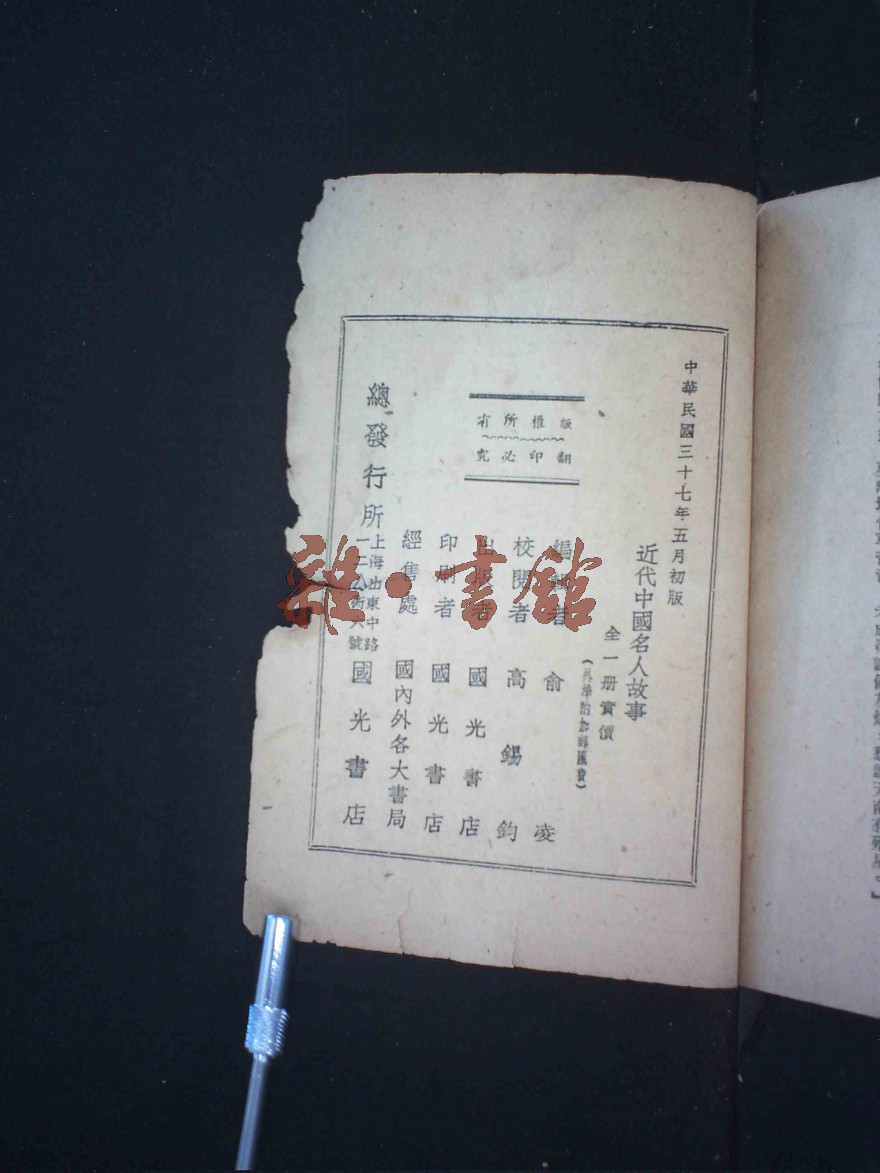 中華民國三十七年五月初版
近代中國名人故事
全一册實價
(外埠酌加郵匯費)
版權所有
翻印必究
編輯者 俞凌
校閱者 高錫鈞
出版者 國光書店
印刷者 國光書店
經售處 國內外各大書局
總發行所 上海山東中路 國光書店
雜·書館